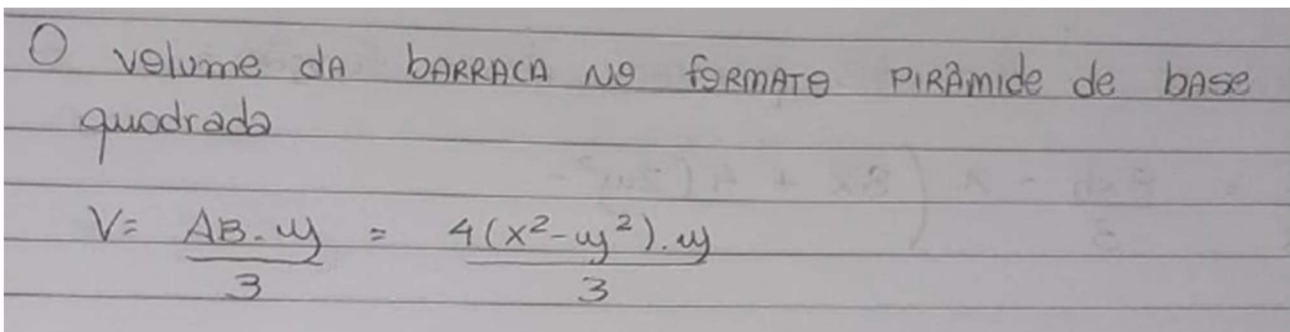 O volume da BARRACA NO fORMATO PIRÂMIDE de bASE
quadrada
V= AB.y/3 = 4(x²-y²).y/3